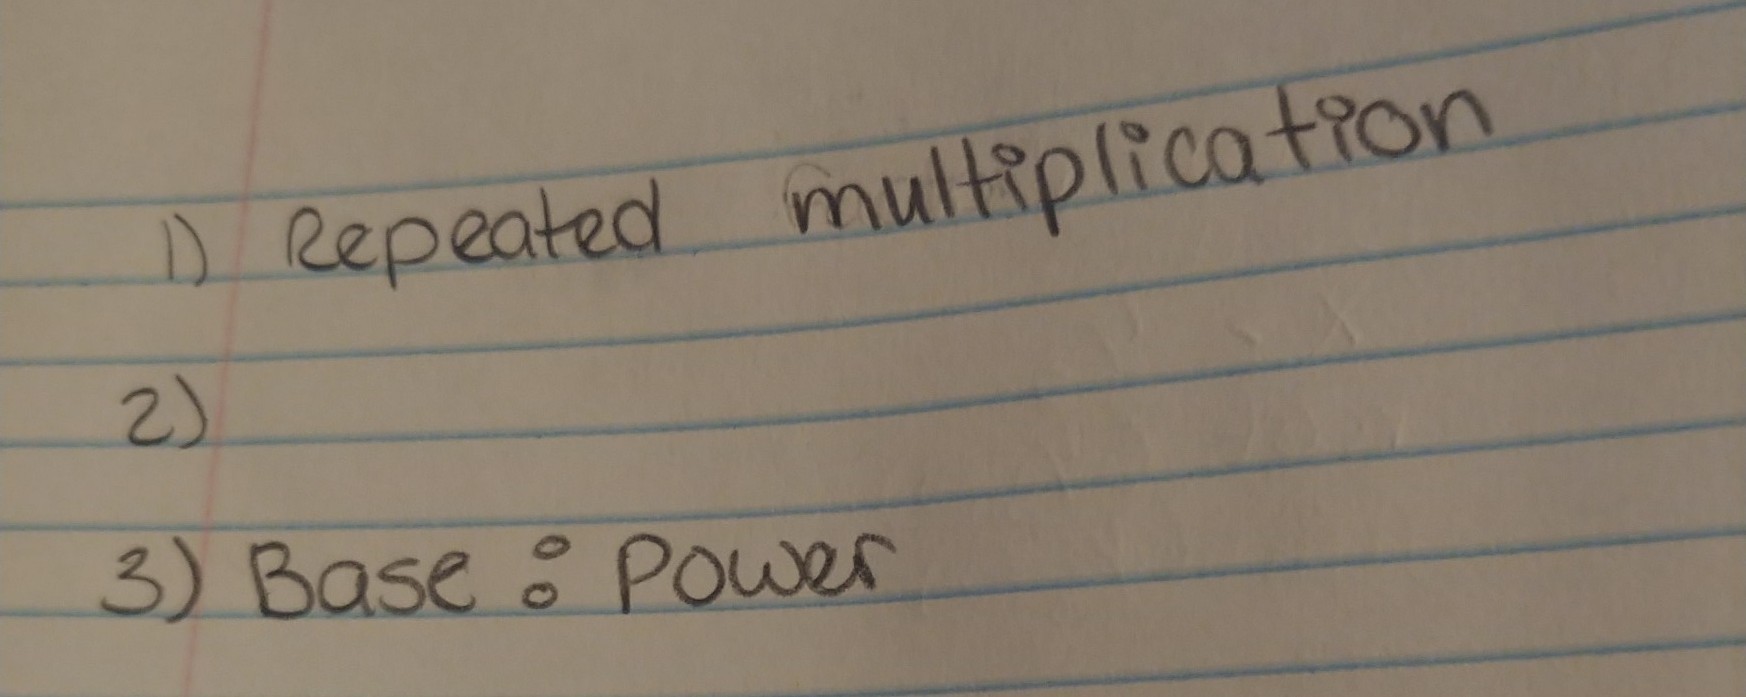 1) Repeated multiplication
2)
3) Base : Power